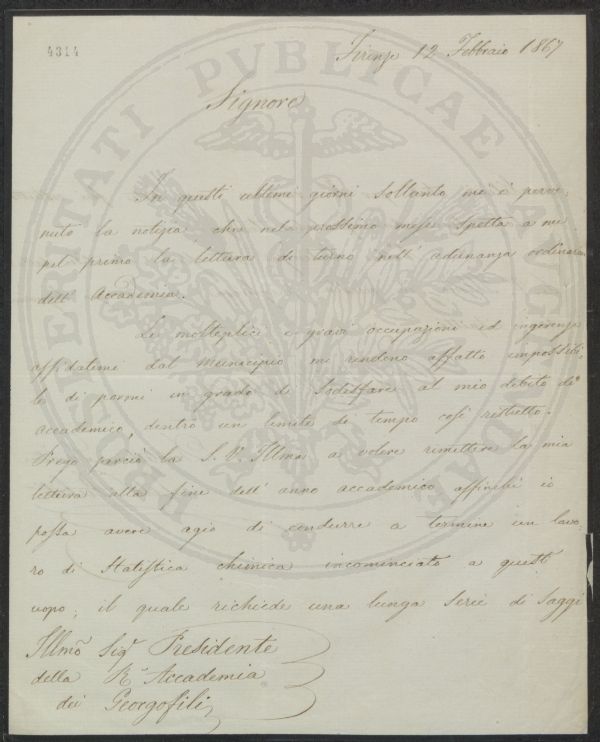 4314
Firenze 12 Febbraio 1867
Signore
In questi ultimi giorni soltanto mi è perve:
nuta la notizia che nel prossimo mese spetta a me
pel primo la lettura di turno nell' adunanza ordinaria
dell' Accademia.
Le molteplici e gravi occupazioni ed ingerenze
affidatemi dal Municipio mi rendono affatto impossibi:
le di pormi in grado di sodisfare al mio debito di
accademico, dentro un limite di tempo così ristretto.
Prego perciò la S. V. Illma a volere rimettere la mia
lettura alla fine dell' anno accademico affinchè io
possa avere agio di condurre a termine un lavo:
ro di Statistica chimica incominciato a questo
uopo; il quale richiede una lunga serie di saggi
Illmo Sigr Presidente
della R. Accademia
dei Georgofili
PROSPERITATI PUBLICAE AUGENDAE